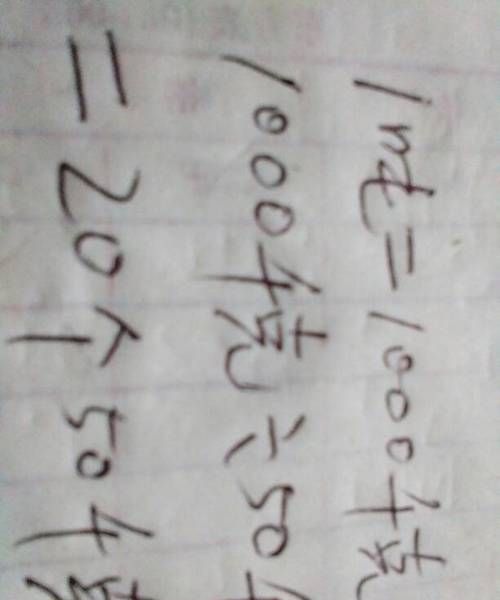 1吨=1000千克
1000千克÷50千
=20个50千克